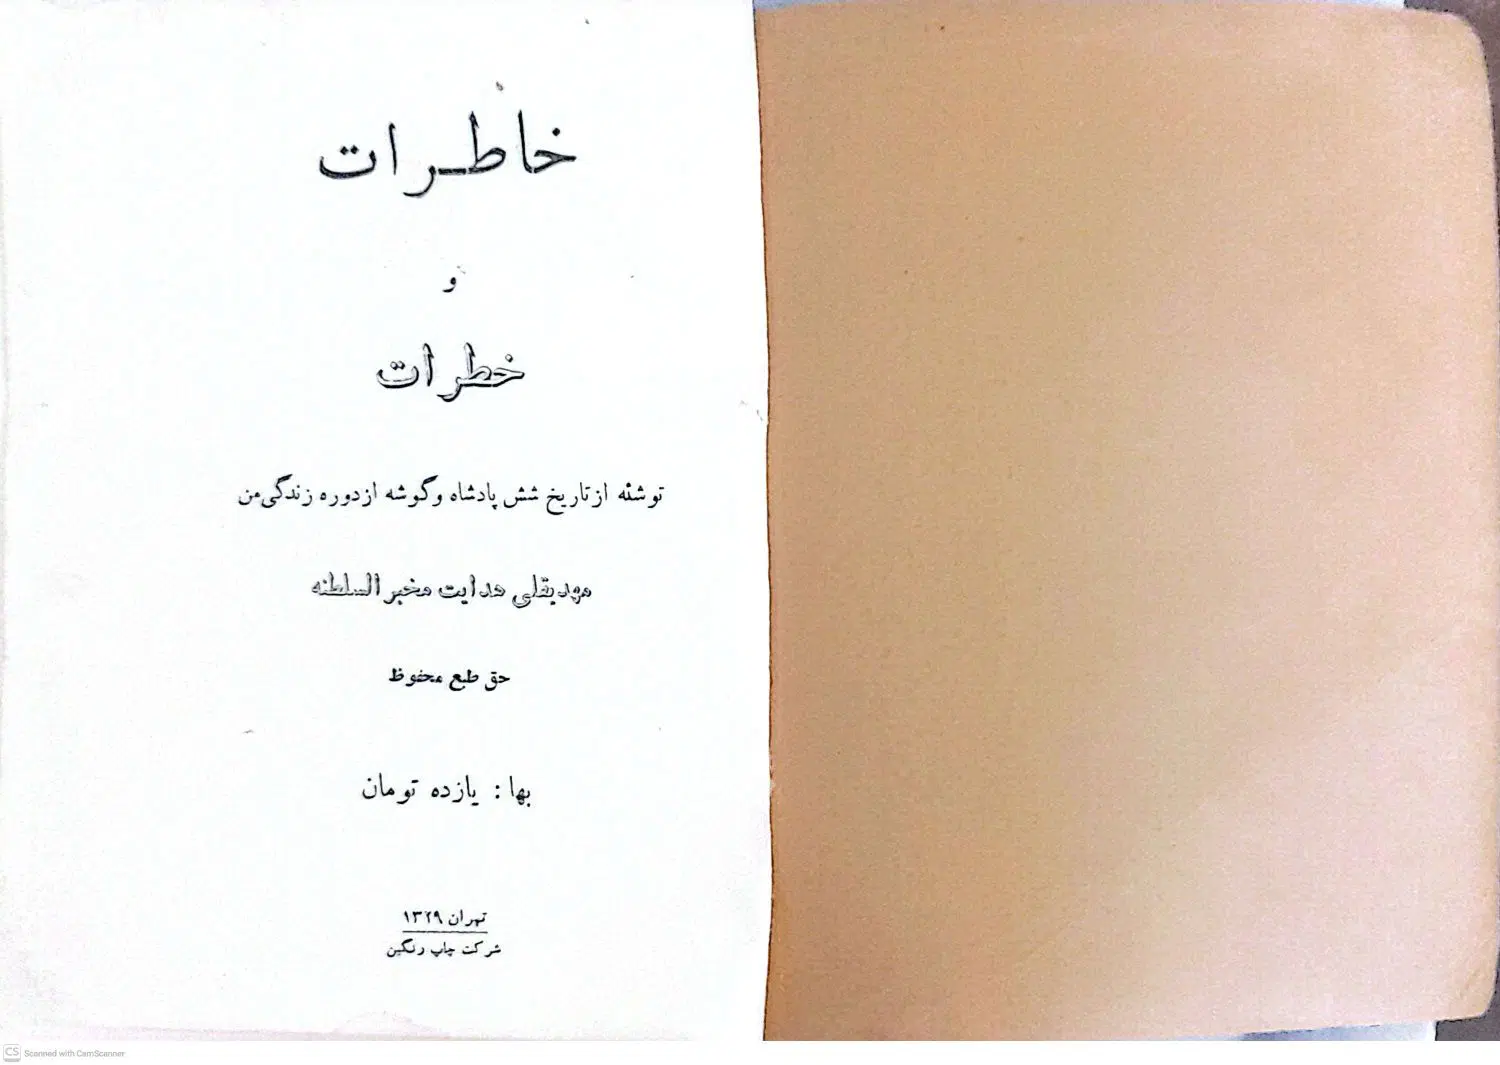 خاطرات
و
خطرات
توشئه از تاریخ شش پادشاه و گوشه از دوره زندگی من
مهدیقلی هدایت مخبر السلطنه
حق طبع محفوظ
بها : یازده تومان
تهران ۱۳۲۹
شرکت چاپ رنگین
CS Scanned with CamScanner